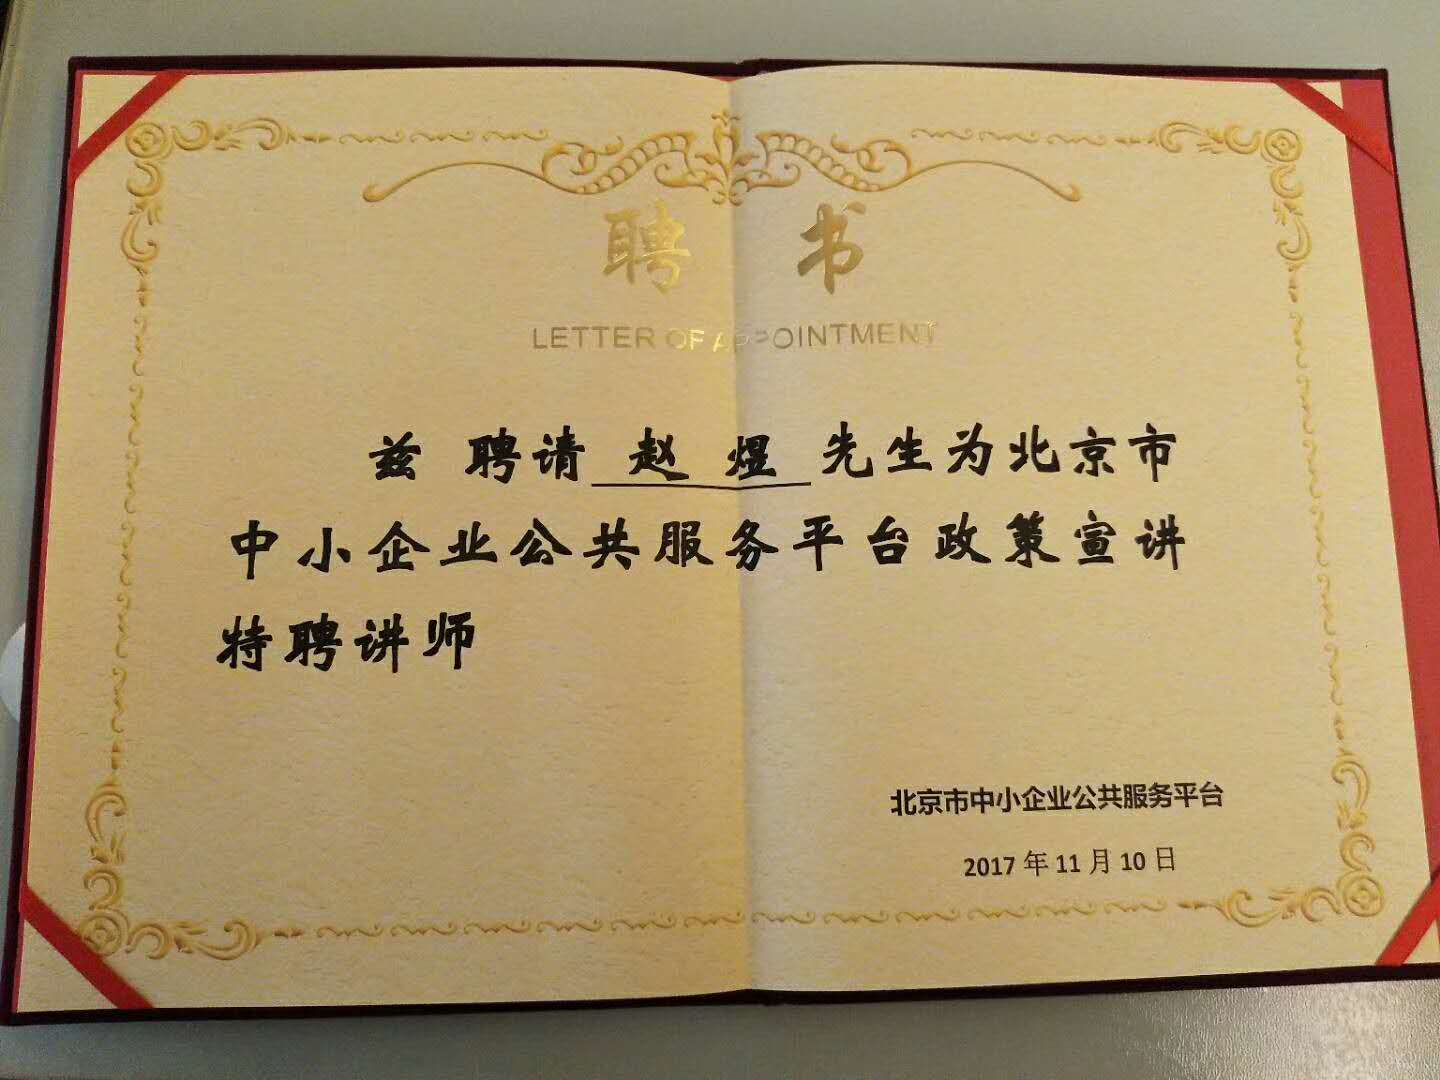 聘书
LETTER OF APPOINTMENT
兹 聘请 赵 煜 先生为北京市
中小企业公共服务平台政策宣讲
特聘讲师
北京市中小企业公共服务平台
2017 年 11 月 10 日